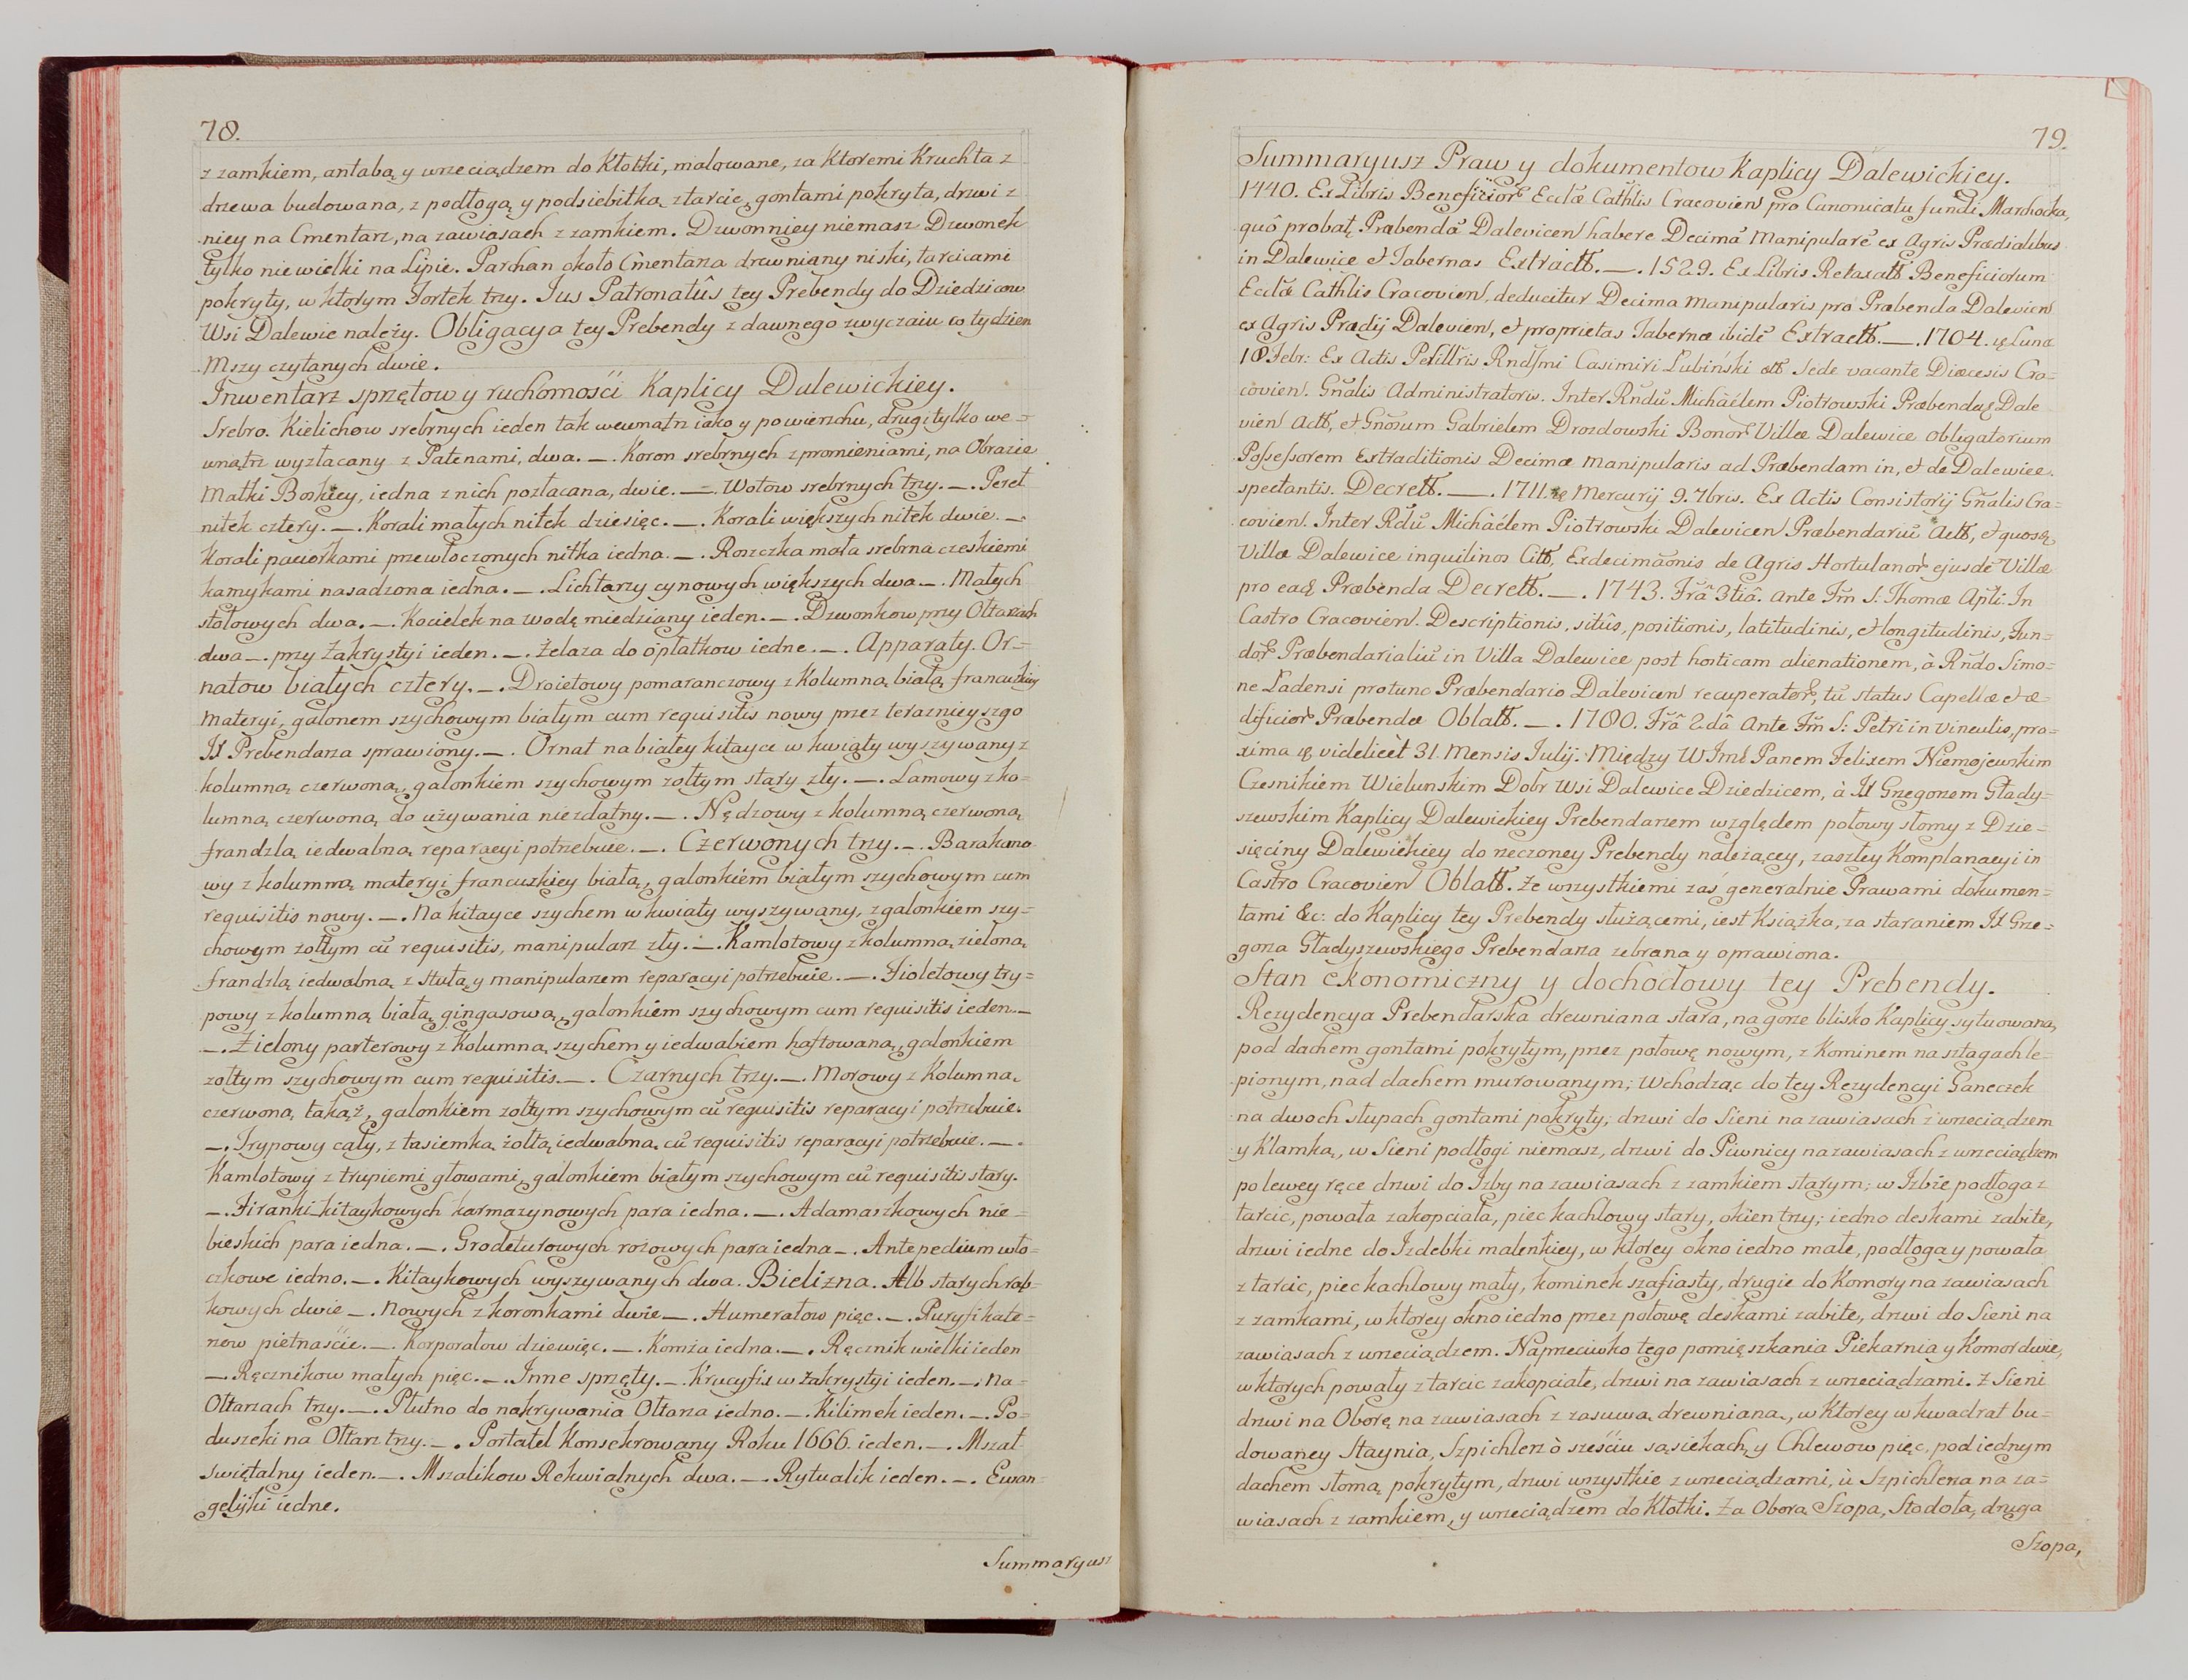 78.
z zamkiem, antabą y wrzeciądzem do Kłotki, malowane, za Ktoremi Kruchta z
drzewa budowana, z podłogą y podsiebitką z tarcic, gontami pokryta, drzwi z
niey na Cmentarz, na zawiasach z zamkiem. Dzwonniey niemasz Dzwonek
tylko niewielki na Lipie. Parchan około Cmentarza drewniany niski, tarcicami
pokryty, w ktorym Fortek trzy. Jus Patronatûs tey Prebendy do Dziedzicow
Wsi Dalewic należy. Obligacya tey Prebendy z dawnego zwyczaiu co tydzien
Mszy czytanych dwie.
Inwentarz sprzętow y ruchomości Kaplicy Dalewickiey.
Srebro. Kielichow srebrnych ieden tak wewnątrz iako y powierzchu, drugi tylko we=
wnątrz wyzłacany z Patenami, dwa. _. Koron srebrnych z promieniami, na Obrazie
Matki Boskiey, iedna z nich pozłacana, dwie. _. Wotow srebrnych trzy. _. Pereł
nitek cztery. _. Korali małych nitek dziesięc. _. Korali większych nitek dwie. _
Korali paciorkami przewłoczonych nitka iedna. _. Roszczka mała srebrna czeskiemi
kamykami nasadzona iedna. _. Lichtarzy cynowych większych dwa _. Małych
stołowych dwa. _. Kociełek na wodę miedziany ieden. _. Dzwonkow przy Ołtarzach
dwa _. przy Zakrystyi ieden. _. Żelaza do opłatkow iedne. _. Apparaty. Or=
natow białych cztery. _. Droietowy pomaranczowy z Kolumną białą francuskiey
materyi, galonem szychowym białym cum requisitis nowy przez teraznieyszgo
JX Prebendarza sprawiony. _. Ornat na białey kitayce w kwiaty wyszywany z
kolumną czerwoną, galonkiem szychowym zołtym stary zły. _. Lamowy z ko=
lumną czerwoną do używania niezdatny. _. Nędzowy z kolumną czerwoną
frandzlą iedwabną reparacyi potrzebuie. _. Czerwonych trzy. _. Barakano
wy z kolumną materyi francuskiey białą, galonkiem białym szychowym cum
requisitis nowy. _. Na kitayce szychem w kwiaty wyszywany, z galonkiem szy=
chowym żołtym cũ requisitis, manipularz zły. _. Kamlotowy z kolumną zieloną
frandzlą iedwabną z Stułą y manipularzem reparacyi potrzebuie. _. Fioletowy try=
powy z kolumną białą gingasową, galonkiem szychowym cum requisitis ieden. _
_. Zielony parterowy z Kolumną szychem y iedwabiem haftowaną, galonkiem
zołtym szychowym cum requisitis. _. Czarnych trzy. _. Morowy z Kolumną
czerwoną takąż, galonkiem zołtym szychowym cũ requisitis reparacyi potrzebuie.
_. Trypowy cały, z tasiemką żołtą iedwabną cũ requisitis reparacyi potrzebuie. _.
Kamlotowy z trupiemi głowami, galonkiem białym szychowym cũ requisitis stary.
_. Firanki kitaykowych karmazynowych para iedna. _. Adamaszkowych nie=
bieskich para iedna. _. Grodeturowych rożowych para iedna _. Antepedium wło=
czkowe iedno. _. Kitaykowych wyszywanych dwa. Bielizna. Alb starych rąb=
kowych dwie _. Nowych z koronkami dwie _. Humerałow pięc. _. Puryfikate=
rzow pietnaście. _. Korporałow dziewięc. _. Komża iedna. _. Ręcznik wielki ieden
_ Ręcznikow małych pięc. _. Inne sprzęty. _ Krucyfix w Zakrystyi ieden. _. Na=
Ołtarzach trzy. _. Płutno do nakrywania Ołtarza iedno. _. Kilimek ieden. _. Po=
duszeki na Ołtarz trzy. _. Portateł Konsekrowany Roku 1666. ieden. _. Mszał
swiętalny ieden. _. Mszalikow Rekwialnych dwa. _. Rytualik ieden. _. Ewan=
gelyiki iedne.
Summaryusz
79.
Summaryusz Praw y dokumentow Kaplicy Dalewickiey.
1440. Ex Libris Beneficior Eccłæ Cathlis Cracovien pro Canonicatu fundi Marchocka,
quô probat, Præbendã Dalevicen habere Decimã Manipularẽ ex Agris Prædialibus
in Dalewice et Tabernas Extractt. _. 1529. Ex Libris Retaxatt Beneficiorum
Eccłæ Cathlis Cracovien, deducitur Decima manipularis pro Præbenda Dalevicen
ex Agris Prædij Dalevien, et proprietas Tabernæ ibidẽ Extractt. _. 1704. Lunæ
18 Febr: Ex Actis Perilltris Rndsmi Casimiri Łubiński Sede vacante Diæcesis Cra=
covien. Gñalis Administratoris. Inter Rndũ Michäelem Piotrowski Præbendar Dale
vien Actt, et Gñosum Gabrielem Drozdowski Bonor Villæ Dalewice obligatorium
Possessorem Extraditionis Decimæ manipularis ad Præbendam in, et de Dalewice
spectantis. Decrett. _. 1711. Mercurij 9. 7bris. Ex Actis Consistorij Gñalis Cra=
covien. Inter Rdũ Michäelem Piotrowski Dalevicen Præbendariũ Actt, et quosq
Villæ Dalewice inquilinos Citt, Exdecimaõnis de Agris Hortulanor ejusdẽ Villæ
pro eaq Præbenda Decrett. _. 1743. Frâ 3tiâ. ante Fm S: Thomæ Apłi. In
Castro Cracovien. Descriptionis, sitûs, positionis, latitudinis, et longitudinis, Fun=
dor Præbendarialiũ in Villa Dalewice post hosticam alienationem, à Rñdo Simo=
ne Ładensi protunc Præbendario Dalevicen recuperator, tũ status Capellæ et æ=
dificior Præbendæ Oblatt. _. 1780. Frâ 2dâ Ante Fm S: Petri in vinculis, pro=
xima videlicèt 31. Mensis Julij. Między W Jmć Panem Felixem Niemojewskim
Czesnikiem Wielunskim Dobr Wsi Dalewice Dziedzicem, à JX Grzegorzem Głady=
szewskim Kaplicy Dalewickiey Prebendarzem względem połowy słomy z Dzie=
sięciny Dalewickiey do rzeczoney Prebendy należącey, zaszłey Komplanacyi in
Castro Cracovien Oblatt. Ze wszystkiemi zaś generalnie Prawami dokumen=
tami &c: do Kaplicy tey Prebendy służącemi, iest Książka, za staraniem JX Grze=
gorza Gładyszewskiego Prebendarza zebrana y oprawiona.
Stan ekonomiczny y dochodowy tey Prebendy.
Rezydencya Prebendarska drewniana stara, na gorze blisko Kaplicy sytuowana,
pod dachem gontami pokrytym, przez połowę nowym, z Kominem na sztagach le=
pionym, nad dachem murowanym; Wchodząc do tey Rezydencyi Ganeczek
na dwoch słupach gontami pokryty; drzwi do Sieni na zawiasach z wrzeciądzem
y Klamką, w Sieni podłogi niemasz, drzwi do Piwnicy na zawiasach z wrzeciądzem
po lewey ręce drzwi do Izby na zawiasach z zamkiem starym; w Izbie podłoga z
tarcic, powała zakopciała, piec kachlowy stary, okien trzy; iedno deskami zabite,
drzwi iedne do Izdebki malenkiey, w ktorey okno iedno małe, podłoga y powała
z tarcic, piec kachlowy mały, kominek szafiasty, drugie do Komory na zawiasach
z zamkami, w ktorey okno iedno przez połowę deskami zabite, drzwi do Sieni na
zawiasach z wrzeciądzem. Naprzeciwko tego pomięszkania Piekarnia y Komor dwie,
w ktorych powały z tarcic zakopciałe, drzwi na zawiasach z wrzeciądzami. Z Sieni
drzwi na Oborę na zawiasach z zasuwą drewnianą, w Ktorey w kwadrat bu=
dowaney Staynia, Szpichlerz ò sześciu sąsiekach, y Chlewow pięc, pod iednym
dachem słomą pokrytym, drzwi wszystkie z wrzeciądzami, ù Szpichlerza na za=
wiasach z zamkiem, y wrzeciądzem do Kłotki. Za Oborą Szopa, Stodoła, druga
Szopa,